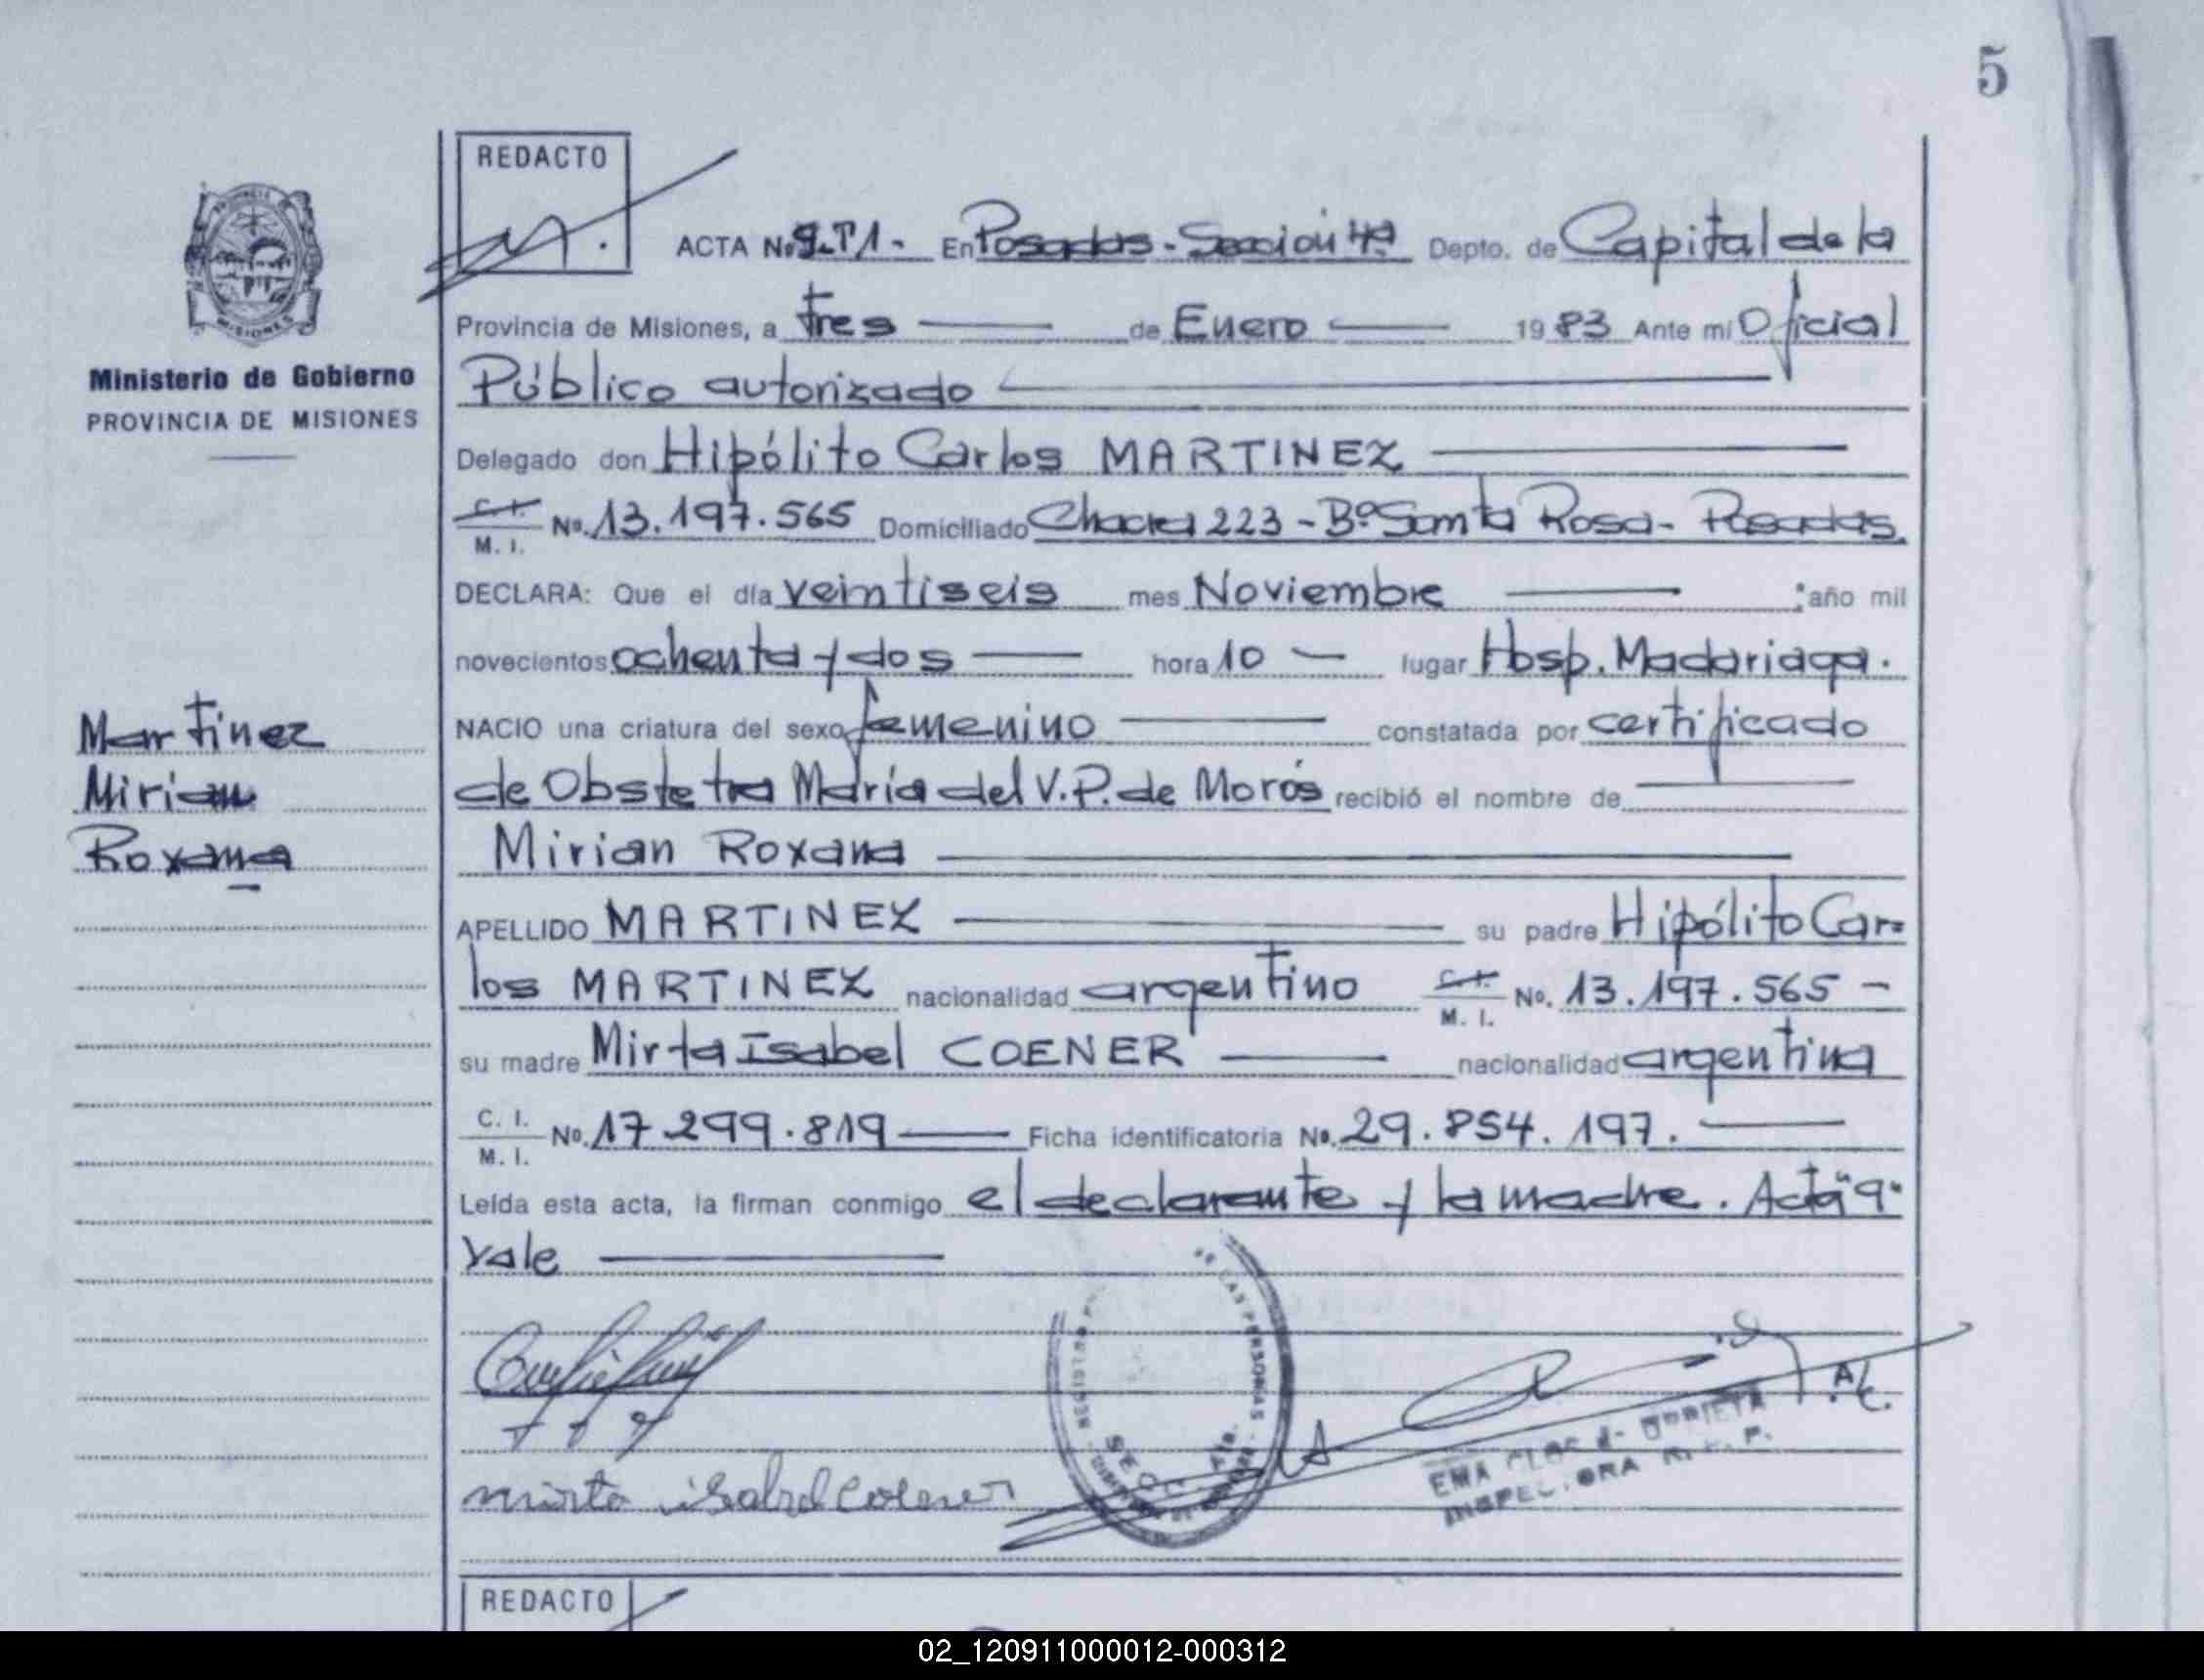 5
REDACTO
ACTA No 9-T1- En Posadas - Sección 4ª Depto. de Capital de la
Provincia de Misiones, a tres de Enero 1983 Ante mi Oficial
Ministerio de Gobierno
PROVINCIA DE MISIONES
Público autorizado
Delegado don Hipólito Carlos MARTINEZ
C. I.
M. I. No. 13.197.565 Domiciliado Chacra 223 - Bº Santa Rosa - Posadas.
DECLARA: Que el día veintiseis mes Noviembre año mil
novecientos ochenta y dos hora 10 lugar Hosp. Madariaga.
NACIO una criatura del sexo femenino constatada por certificado
de Obstetra María del V. P. de Morós recibió el nombre de
Mirian Roxana
Martinez
Mirian
Roxana
APELLIDO MARTINEZ su padre Hipólito Car-
los MARTINEZ nacionalidad argentino C. I.
M. I. No. 13.197.565 -
su madre Mirta Isabel COENER nacionalidad argentina
C. I.
M. I. No. 17.299.819 Ficha identificatoria No. 29.854.197.
Leída esta acta, la firman conmigo el declarante y la madre. Acta "9"
vale
mirta isabel Coener
INSPECTORA
REDACTO
02_120911000012-000312